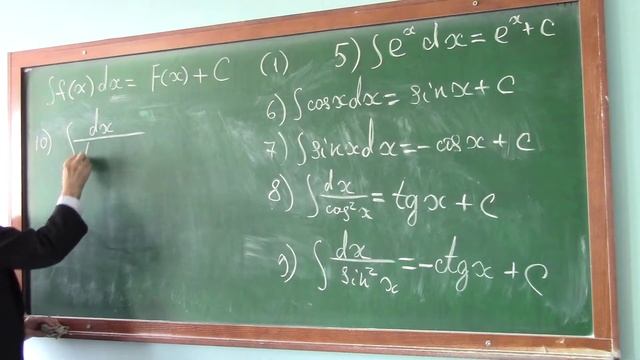 ∫f(x)dx = F(x) + C (1)
5) ∫e^x dx = e^x + C
6) ∫cosxdx = sinx + C
7) ∫sinxdx = -cosx + C
8) ∫dx/cos²x = tgx + C
9) ∫dx/sin²x = -ctgx + C
10) ∫dx